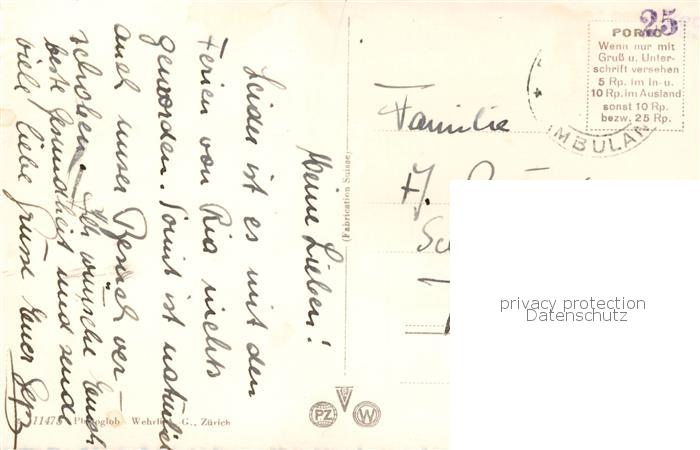 Meine Lieben!
Leider ist es mit den
Ferien von Ria nichts
geworden. Somit ist natürlich
auch unser Besuch ver-
schoben. Ich wünsche Euch
beste Gesundheit und sende
viele liebe Grüsse Euer
(Fabrication Suisse)
11478 Photoglob-Wehrli A. G., Zürich
PZ
W
25
PORTO
Wenn nur mit
Gruß u. Unter-
schrift versehen
5 Rp. im In- u.
10 Rp. im Ausland
sonst 10 Rp.
bezw. 25 Rp.
MBULAN
Familie
privacy protection
Datenschutz